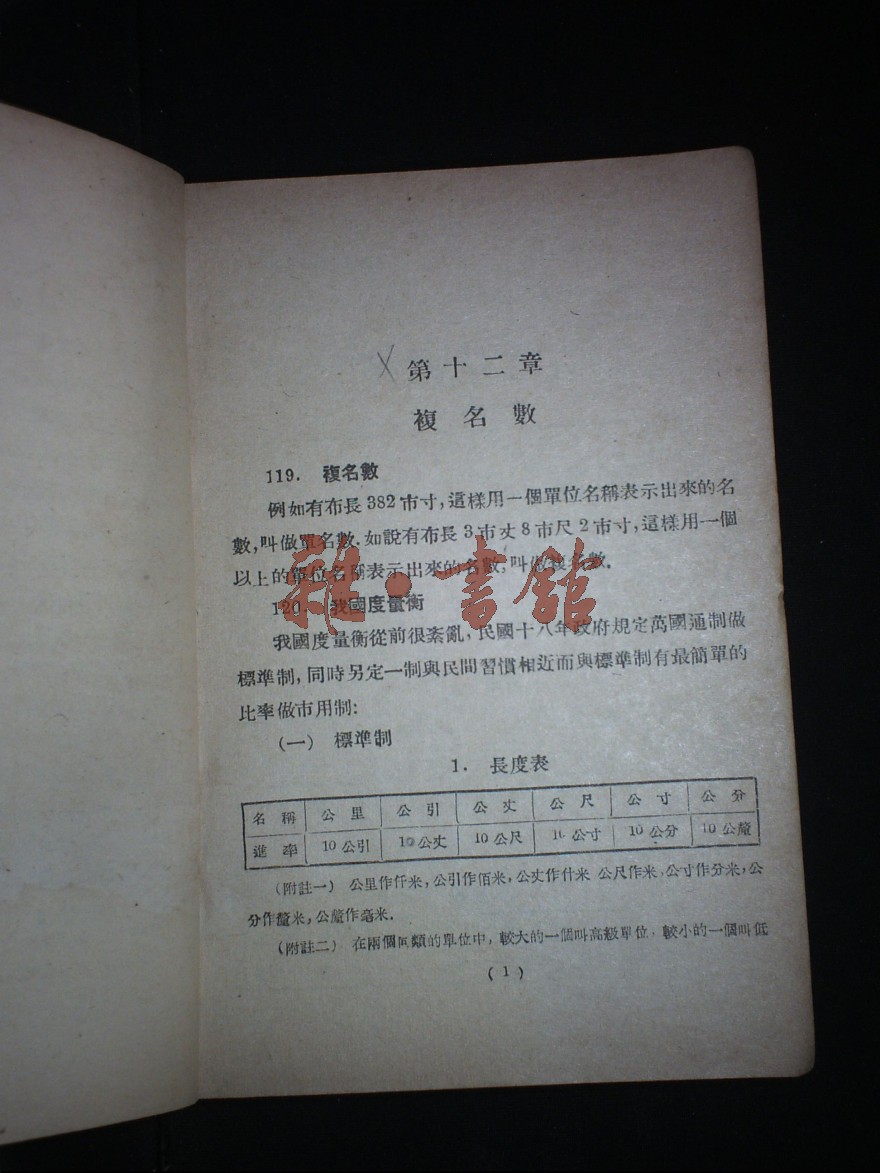 第十二章
複名數
119. 複名數
例如有布長382市寸,這樣用一個單位名稱表示出來的名
數,叫做單名數.如說有布長3市丈8市尺2市寸,這樣用一個
以上的單位名稱表示出來的名數,叫做複名數.
雜·書館
120. 我國度量衡
我國度量衡從前很紊亂,民國十八年政府規定萬國通制做
標準制,同時另定一制與民間習慣相近而與標準制有最簡單的
比率做市用制:
(一) 標準制
1. 長度表
名稱 公里 公引 公丈 公尺 公寸 公分
進率 10公引 10公丈 10公尺 10公寸 10公分 10公釐
(附註一) 公里作仟米,公引作佰米,公丈作什米 公尺作米,公寸作分米,公
分作釐米,公釐作毫米.
(附註二) 在兩個同類的單位中,較大的一個叫高級單位,較小的一個叫低
(1)